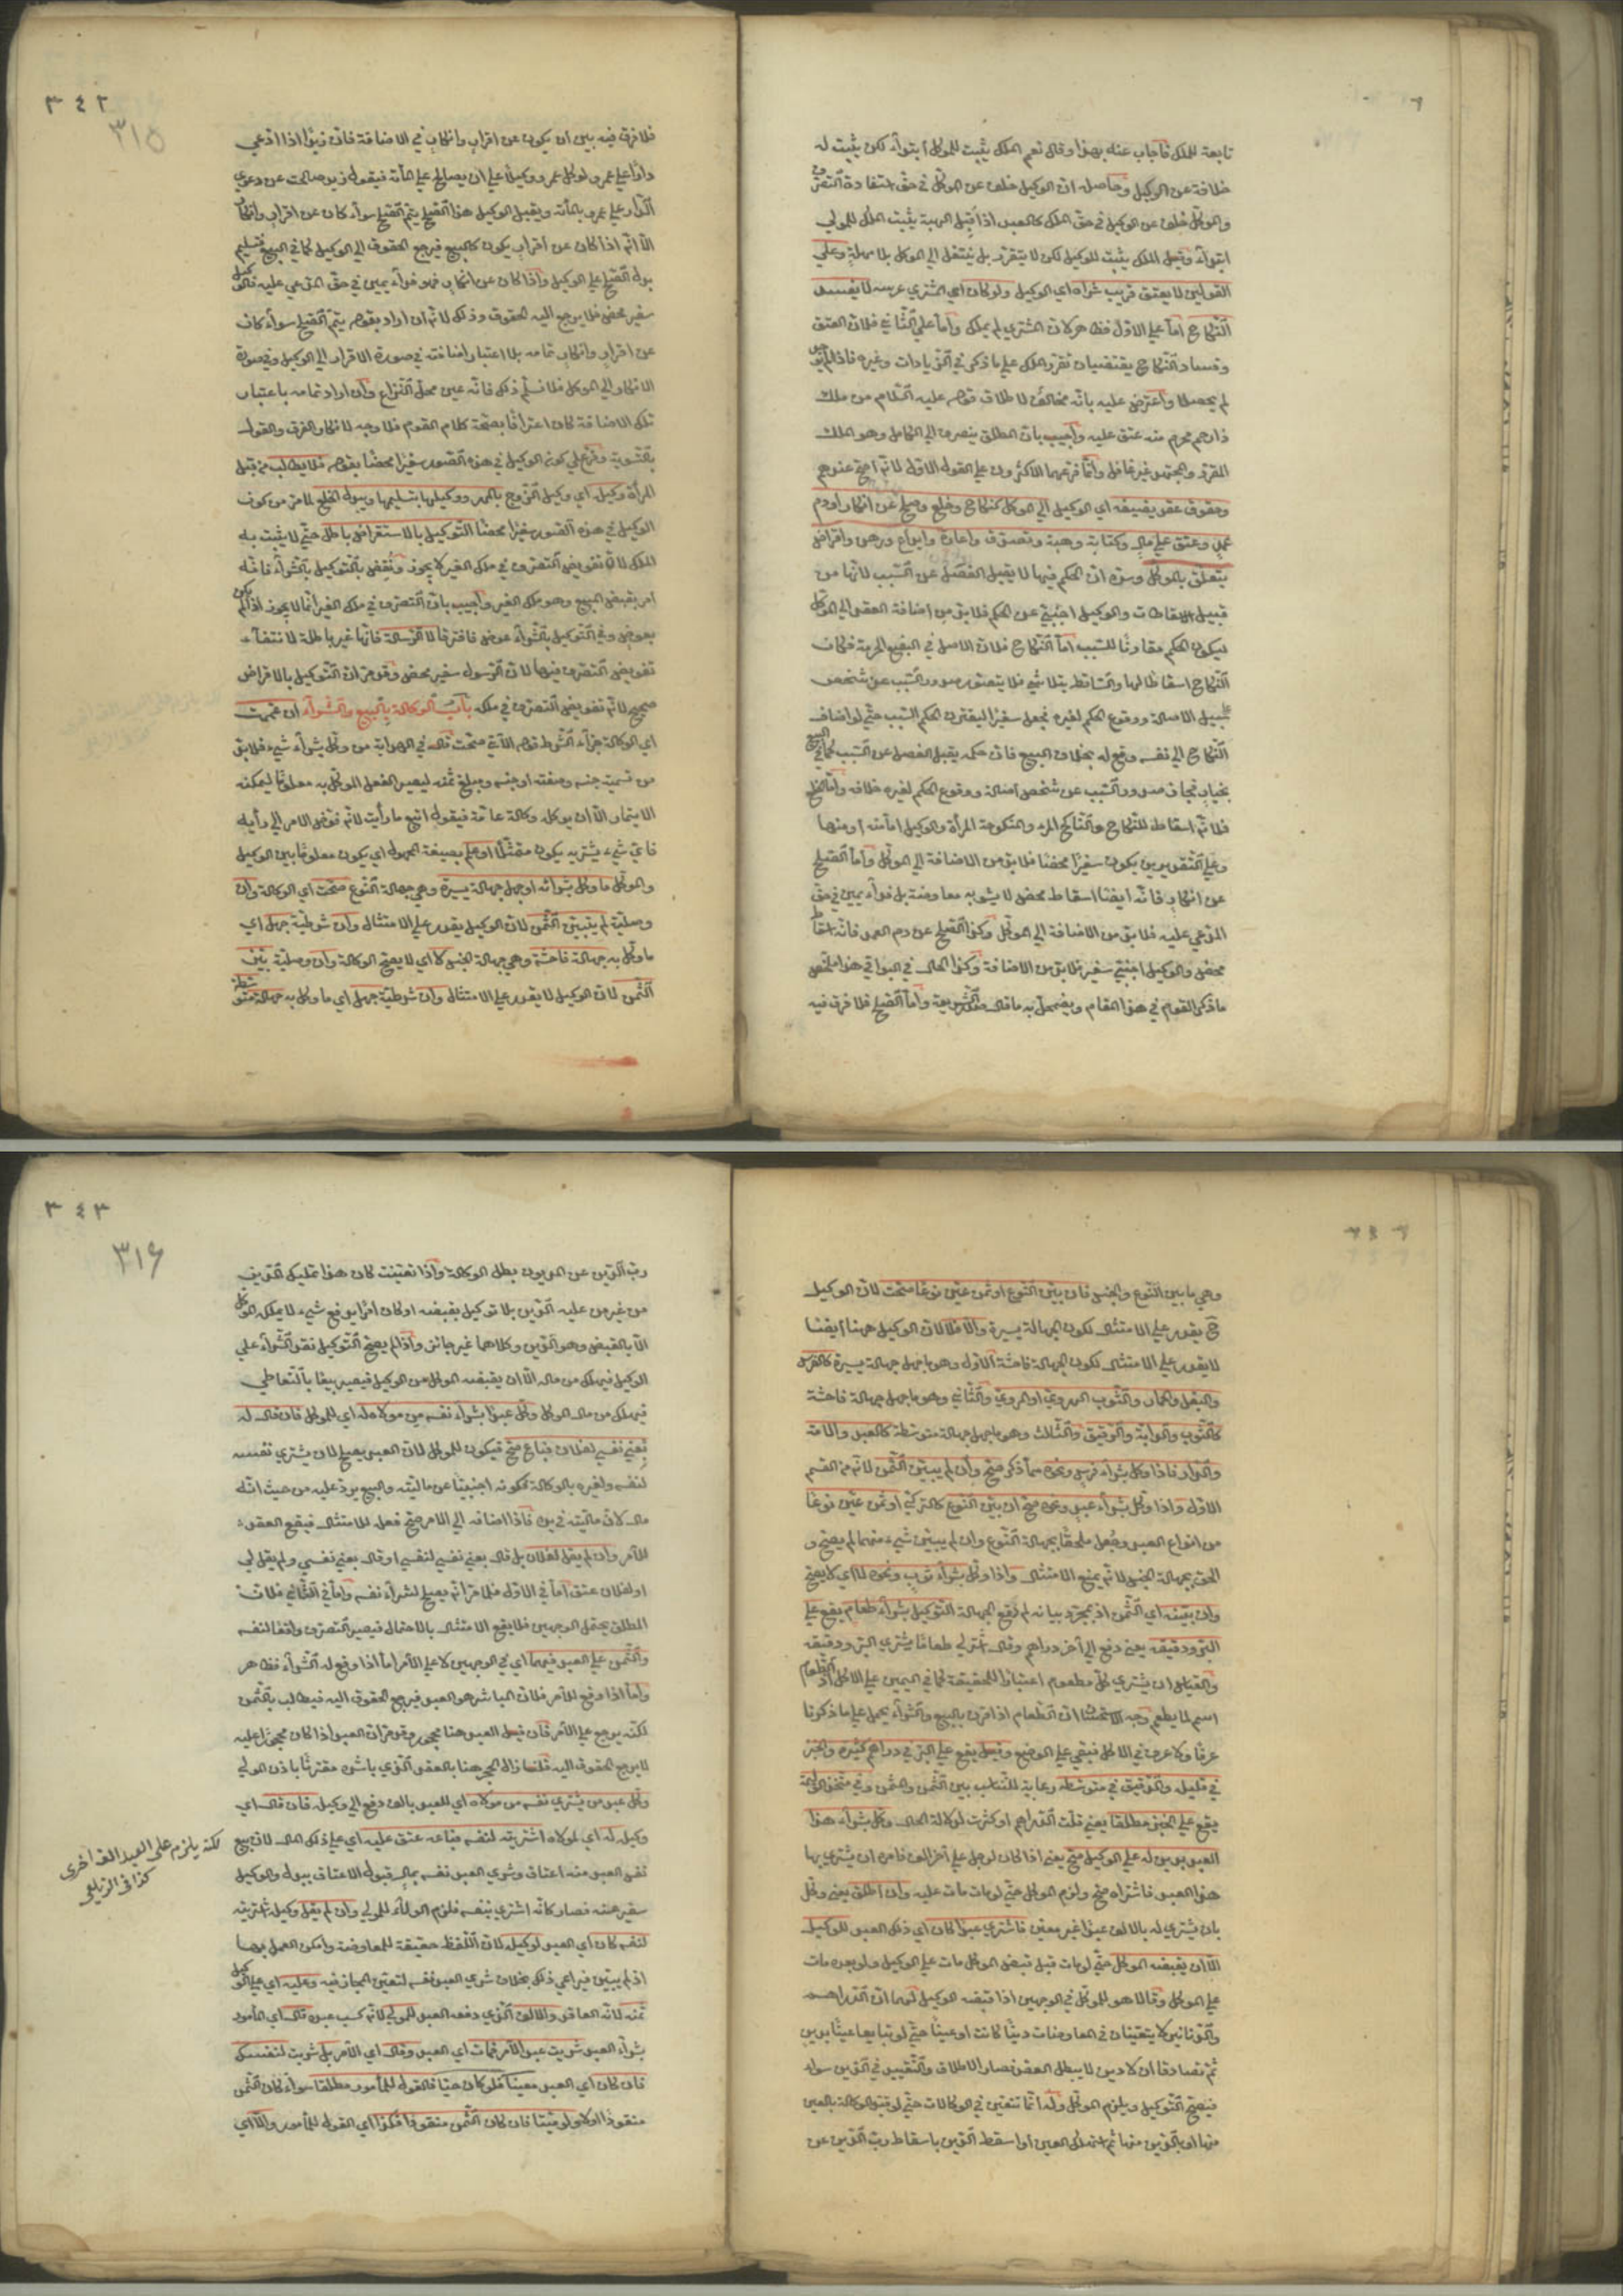 تابعة للملك فأجاب عنه بهذا وقال نعم الملك يثبت للموكل ابتداء لكن يثبت له
خلافة عن الوكيل وحاصله ان الوكيل خلف عن الموكل في حق استفادة التصرف
والموكل خلف عن الوكيل في حق الملك كالعبد اذا قبل الهبة يثبت الملك للمولى
ابتداء وقيل الملك يثبت للوكيل لكن لا يتقرر بل ينتقل الى الموكل بلا مهلة وعلى
القولين لا يعتق قريب شراه اي الوكيل ولو كان اي المشتري عرسه لا يفسد
النكاح اما على الاول فظاهر لان المشتري لم يملك واما على الثاني فلان العتق
وفساد النكاح يقتضيان تقرر الملك على ما ذكر في الزيادات وغيره فاذا لم يتقرر
لم يحصلا واعترض عليه بانه مخالف لاطلاق قوله عليه السلام من ملك
ذا رحم محرم منه عتق عليه واجيب بان المطلق ينصرف الى الكامل وهو الملك
المقرر والمجتهد غير غافل وانما فرعهما الاكثرون على القول الاول لانه اصح عندهم
وحقوق عقد يضيفه اي الوكيل الى الموكل كنكاح وخلع وصلح عن انكار او دم
عمد وعتق على مال وكتابة وهبة وتصدق واعارة وايداع ورهن واقراض
يتعلق بالموكل وسره ان الحكم فيها لا يقبل الفصل عن السبب لانها من
قبيل الاسقاطات والوكيل اجنبي عن الحكم فلا بد من اضافة العقد الى الموكل
ليكون الحكم مقارنا للسبب اما النكاح فلان الاصل في البضع الحرمة فكان
النكاح اسقاطا لها والساقط يتلاشى فلا يتصور صدور السبب عن شخص
على سبيل الاصالة ووقوع الحكم لغيره فجعل سفيرا ليقترن الحكم السبب حتى لو اضاف
النكاح الى نفسه وقع له بخلاف البيع فان حكمه يقبل الفصل عن السبب كما في البيع
بخيار فجاز صدور السبب عن شخص اصالة ووقوع الحكم لغيره خلافة واما الخلع
فلانه اسقاط للنكاح والناكح المرء والمنكوحة المرأة والوكيل اما منه او منها
وعلى التقديرين يكون سفيرا محضا فلا بد من الاضافة الى الموكل واما الصلح
عن انكار فانه ايضا اسقاط محض لا يشوبه معاوضة بل فداء يمين في حق
المدعى عليه فلا بد من الاضافة الى الموكل وكذا الصلح عن دم العمد فانه اسقاط
محض والوكيل اجنبي سفير فلا بد من الاضافة وكذا الحال في البواقي هذا ملخص
ما ذكر القوم في هذا المقام ويضمحل به ما قال صدر الشريعة واما الصلح فلا فرق فيه
٣٤٢
٣١٥
فلا فرق فيه بين ان يكون عن اقرار وانكار في الاضافة فان زيدا اذا ادعى
دارا على عمرو فوكل عمرو وكيلا على ان يصالح على المائة فيقول زيد صالحت عن دعوى
الدار على عمرو بالمائة ويقبل الوكيل هذا الصلح يتم الصلح سواء كان عن اقرار وانكار
الا انه اذا كان عن اقرار يكون كالبيع فيرجع الحقوق الى الوكيل كما في البيع فتسليم
بدل الصلح على الوكيل واذا كان عن انكار فهو فداء يمين في حق المدعى عليه فالوكيل
سفير محض فلا يرجع اليه الحقوق وذلك لانه ان اراد بقوله يتم الصلح سواء كان
عن اقرار وانكار تمامه بلا اعتبار اضافته في صورة الاقرار الى الوكيل وفي صورة
الانكار الى الموكل فلا نسلم ذلك فانه عين محل النزاع وان اراد تمامه باعتبار
تلك الاضافة كان اعترافا بصحة كلام القوم فلا وجه لانكار الفرق والقول
بالتسوية وفرع على كون الوكيل في هذه الصور سفيرا محضا بقوله فلا يطالب من قبل
المرأة وكيله اي وكيل الزوج بالمهر ووكيلها بتسليمها وببدل الخلع لما مر من كون
الوكيل في هذه الصور سفيرا محضا التوكيل بالاستقراض باطل حتى لا يثبت به
الملك لان تفويض التصرف في ملك الغير لا يجوز ونقض بالتوكيل بالشراء فانه
امر بقبض المبيع وهو ملك الغير واجيب بان التصرف في ملك الغير انما لا يجوز اذا لم يكن
بعوض وفي التوكيل بالشراء عوض فافترقا لا الرسالة فانها غير باطلة لانتفاء
تفويض التصرف فيها لان الرسول سفير محض وقد مر ان التوكيل بالاقراض
صحيح لانه تفويض التصرف في ملكه باب الوكالة بالبيع والشراء ان عمت
اي الوكالة جزاء الشرط قوله الآتي صحت قال في الهداية من وكل بشراء شيء فلا بد
من تسمية جنسه وصفته او جنسه ومبلغ ثمنه ليصير الفعل الموكل به معلوما ليمكنه
الايتمار الا ان يوكله وكالة عامة فيقول ابتع ما رأيت لانه فوض الامر الى رأيه
فاي شيء يشتريه يكون ممتثلا او علم بصيغة المجهول اي يكون معلوما بين الوكيل
والموكل ما وكل بشرائه او جهل جهالة يسيرة وهي جهالة النوع صحت اي الوكالة وان
وصلية لم يبين الثمن لان الوكيل يقدر على الامتثال وان شرطية جهل اي
ما وكل به جهالة فاحشة وهي جهالة الجنس لا اي لا يصح الوكالة وان وصلية بين
الثمن لان الوكيل لا يقدر على الامتثال وان شرطية جهل اي ما وكل به جهالة متوسطة
وهي ما بين النوع والجنس فان بين النوع او ثمن عين نوعا صحت لان الوكيل
ح يقدر على الامتثال لكون الجهالة يسيرة والا فلا لان الوكيل ههنا ايضا
لا يقدر على الامتثال لكون الجهالة فاحشة الاول وهو ما جهل جهالة يسيرة كالفرس
والبغل والحمار والثوب الهروي او المروي والثاني وهو ما جهل جهالة فاحشة
كالثوب والدابة والرقيق والثالث وهو ما جهل جهالة متوسطة كالعبد والامة
والدار فاذا وكل بشراء فرس ونحوه مما ذكر صح وان لم يبين الثمن لانه من القسم
الاول واذا وكل بشراء عبد ونحوه صح ان بين النوع كالتركي او ثمن عين نوعا
من انواع العبد وجعل ملحقا بجهالة النوع وان لم يبين شيء منهما لم يصح و
الحق بجهالة الجنس لانه يمنع الامتثال واذا وكل بشراء ثوب ونحوه لا اي لا يصح
وان بينه اي الثمن اذ بمجرد بيانه لم ترفع الجهالة التوكيل بشراء طعام يقع على
البر ودقيقه يعني دفع الى آخر دراهم وقال اشتر لي طعاما يشتري البر ودقيقه
والقياس ان يشتري كل مطعوم اعتبارا للحقيقة كما في اليمين على الاكل اذ الطعام
اسم لما يطعم وجه الاستحسان ان الطعام اذا قرن بالبيع والشراء يحمل على ما ذكرنا
عرفا ولا عرف في الاكل فبقي على الوضع وقيل يقع على البر في دراهم كثيرة والخبز
في قليله والدقيق في متوسطه رعاية للتناسب بين الثمن والمثمن وفي متخذ الوليمة
يقع على الخبز مطلقا يعني قلت الدراهم او كثرت لدلالة الحال وكل بشراء هذا
العبد بدين له على الوكيل صح يعني اذا كان لرجل على آخر الف فامره ان يشتري بها
هذا العبد فاشتراه صح ولزم الموكل حتى لو مات مات عليه وان اطلق يعني وكل
بان يشتري له بالالف عبدا غير معين فاشترى عبدا كان اي ذلك العبد للوكيل
الا ان يقبضه الموكل حتى لو مات قبل قبض الموكل مات على الوكيل ولو بعده مات
على الموكل وقالا هو للموكل في الوجهين اذا قبضه الوكيل لهما ان الدراهم
والدنانير لا يتعينان في المعاوضات دينا كانت او عينا حتى لو تبايعا عينا بدين
ثم تصادقا ان لا دين لا يبطل العقد فصار الاطلاق والتقييد في الدين سواء
فيصح التوكيل ويلزم الموكل وله انها تتعين في الوكالات حتى لو قيد الوكالة بالعين
منها او بالدين منها ثم استهلك العين او اسقط الدين باسقاط رب الدين عن
٣٤٣
٣١٦
رب الدين عن المديون بطل الوكالة واذا تعينت كان هذا تمليك الدين
من غير من عليه الدين بلا توكيل بقبضه او كان امرا بدفع شيء لا يملكه الموكل
الا بالقبض وهو الدين وكلاهما غير جائز واذا لم يصح التوكيل نفذ الشراء على
الوكيل فيهلك من ماله الا ان يقبضه الموكل من الوكيل فيصير بيعا بالتعاطي
فيهلك من مال الموكل وكل عبدا بشراء نفسه من مولاه له اي للموكل فان قال له
بعني نفسي لفلان فباع صح فيكون للموكل لان العبد يصلح لان يشتري نفسه
لنفسه ولغيره بالوكالة لكونه اجنبيا عن ماليته والبيع يرد عليه من حيث انه
مال لان ماليته في يده فاذا اضافه الى الامر صح فعله للامتثال فيقع العقد
للآمر وان لم يقل لفلان بل قال بعني نفسي لنفسي او قال بعني نفسي ولم يقل لي
او لفلان عتق اما في الاول فلما مر انه يصلح لشراء نفسه واما في الثاني فلان
المطلق يحتمل الوجهين فلا يقع الامتثال بالاحتمال فيصير التصرف واقعا لنفسه
والثمن على العبد فيهما اي في الوجهين لا على الآمر اما اذا وقع له الشراء فظاهر
واما اذا وقع للآمر فلان المباشر هو العبد فيرجع الحقوق اليه فيطالب بالثمن
لكنه يرجع على الآمر فان قيل العبد هنا محجور وقد مر ان العبد اذا كان محجورا عليه
لا يرجع الحقوق اليه قلنا زال الحجر هنا بالعقد الذي باشره مقترنا باذن المولى
وكل عبد من يشتري نفسه من مولاه اي للعبد بالف دفع الى وكيله فان قال اي
وكيله له اي لمولاه اشتريته لنفسه فباعه عتق عليه اي على ذلك المال لان بيع
نفس العبد منه اعتاق وشري العبد نفسه بمال قبول الاعتاق ببدل والوكيل
سفير عنه فصار كانه اشترى بنفسه فلزم الولاء للمولى وان لم يقل وكيله اشتريته
لنفسه كان اي العبد لوكيله لان اللفظ حقيقة للمعاوضة وامكن العمل بها
اذا لم يبين فيراعى ذلك بخلاف شرى العبد نفسه لتعين المجاز فيه وعليه اي على الوكيل
ثمنه لانه العاقد والالف الذي دفعه العبد للمولى لانه كسب عبده قال اي المأمور
بشراء العبد شريت عبدا للآمر فمات اي العبد وقال اي الآمر بل شريت لنفسك
فان كان اي العبد معينا فلو كان حيا فالقول للمأمور مطلقا سواء كان الثمن
منقودا او لا ولو ميتا فان كان الثمن منقودا فكذا اي القول للمأمور والا اي
لكنه يلزم على العبد الف اخرى
كذا في الزيلعي